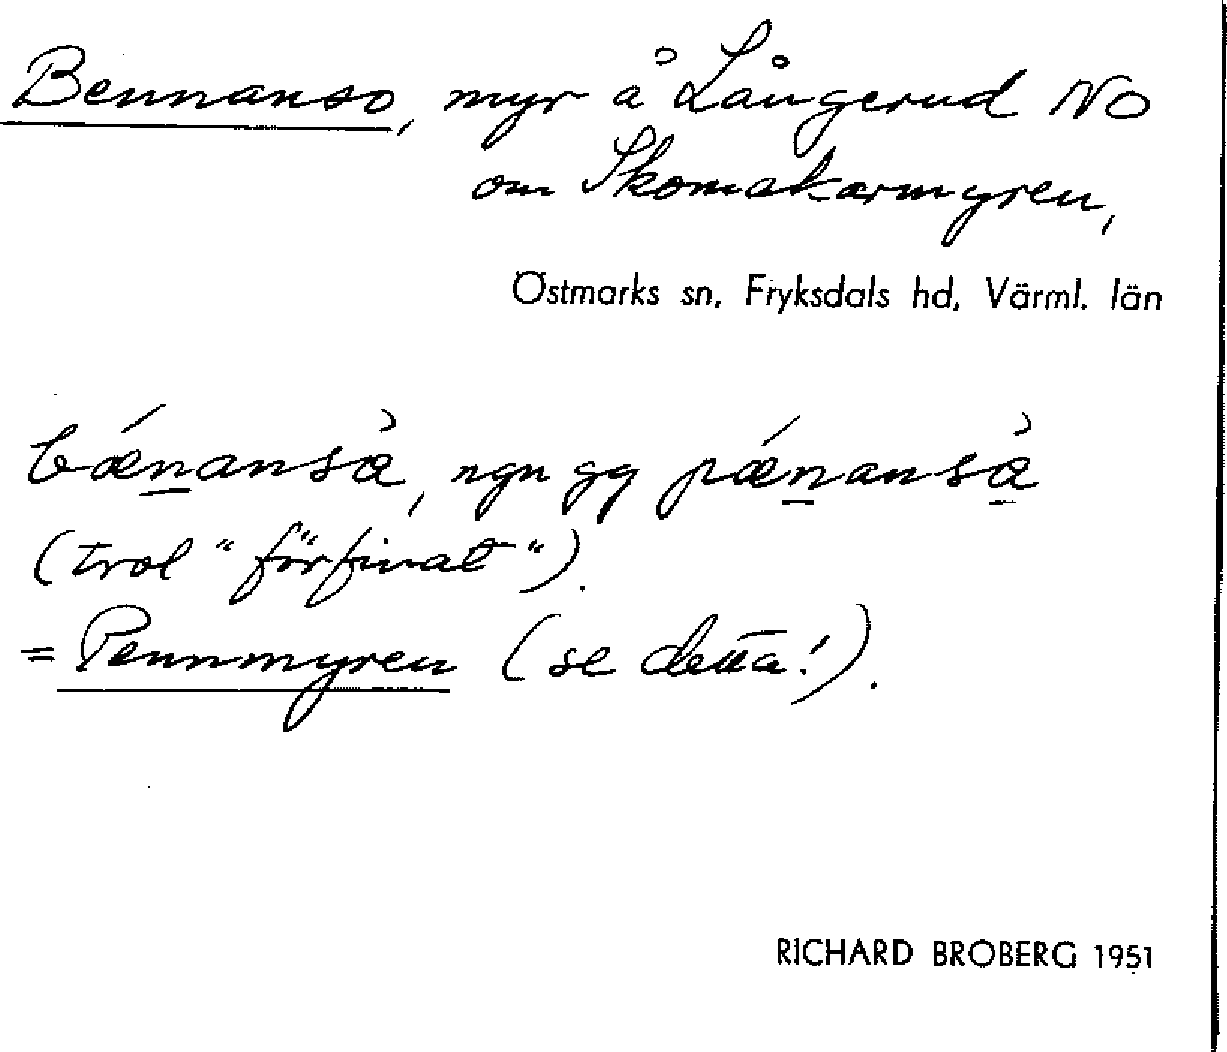 Bennanso, myr å Långerud NO
om Skomakarmyren,
Östmarks sn, Fryksdals hd, Värml. län
bǽnanså̀, ngn gg pǽnanså̀
(trol "förfinat").
= Pennmyren (se detta!).
RICHARD BROBERG 1951